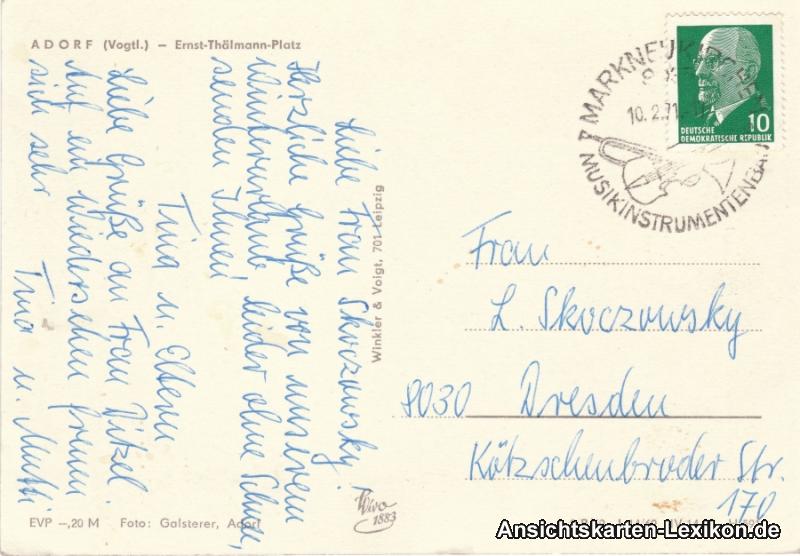 ADORF (Vogtl.) — Ernst-Thälmann-Platz
Liebe Frau Skoczowsky!
Herzliche Grüße von unserem
Winterurlaub leider ohne Schnee,
senden Ihnen
Tina u. Eltern
Liebe Grüße an Frau Ditzel.
Auf ein Wiedersehen freuen
sich sehr
Tina u. Mutti
Winkler & Voigt, 701 Leipzig
MARKNEUKIRCHEN
10.2.71
MUSIKINSTRUMENTENBAU
10
DEUTSCHE
DEMOKRATISCHE REPUBLIK
Frau
L. Skoczowsky
8030 Dresden
Kötzschenbroder Str.
170
Wivo
1883
EVP —,20 M Foto: Galsterer, Adorf
Ansichtskarten-Lexikon.de